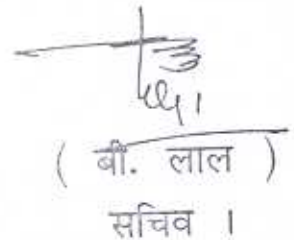 ( बी. लाल )
सचिव ।